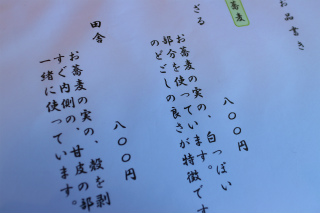 お品書き
蕎麦
ざる
八〇〇円
お蕎麦の実の、白っぽい
部分を使っています。
のどごしの良さが特徴です
田舎
八〇〇円
お蕎麦の実の、殻を剥
すぐ内側の、甘皮の部
一緒に使っています。